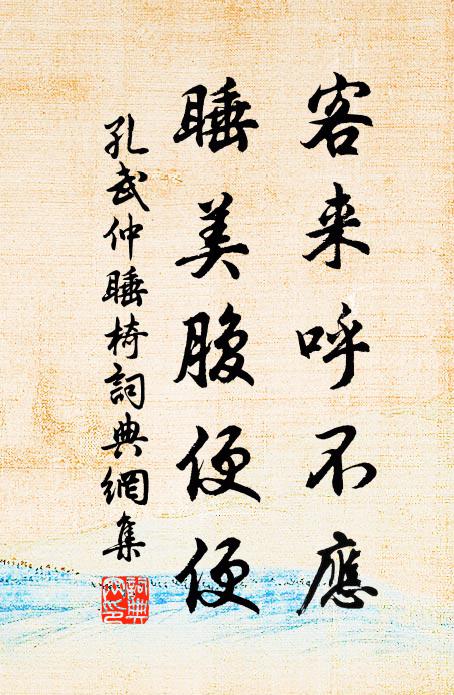 客来呼不應
睡美腹便便
孔武仲睡椅詞典網集